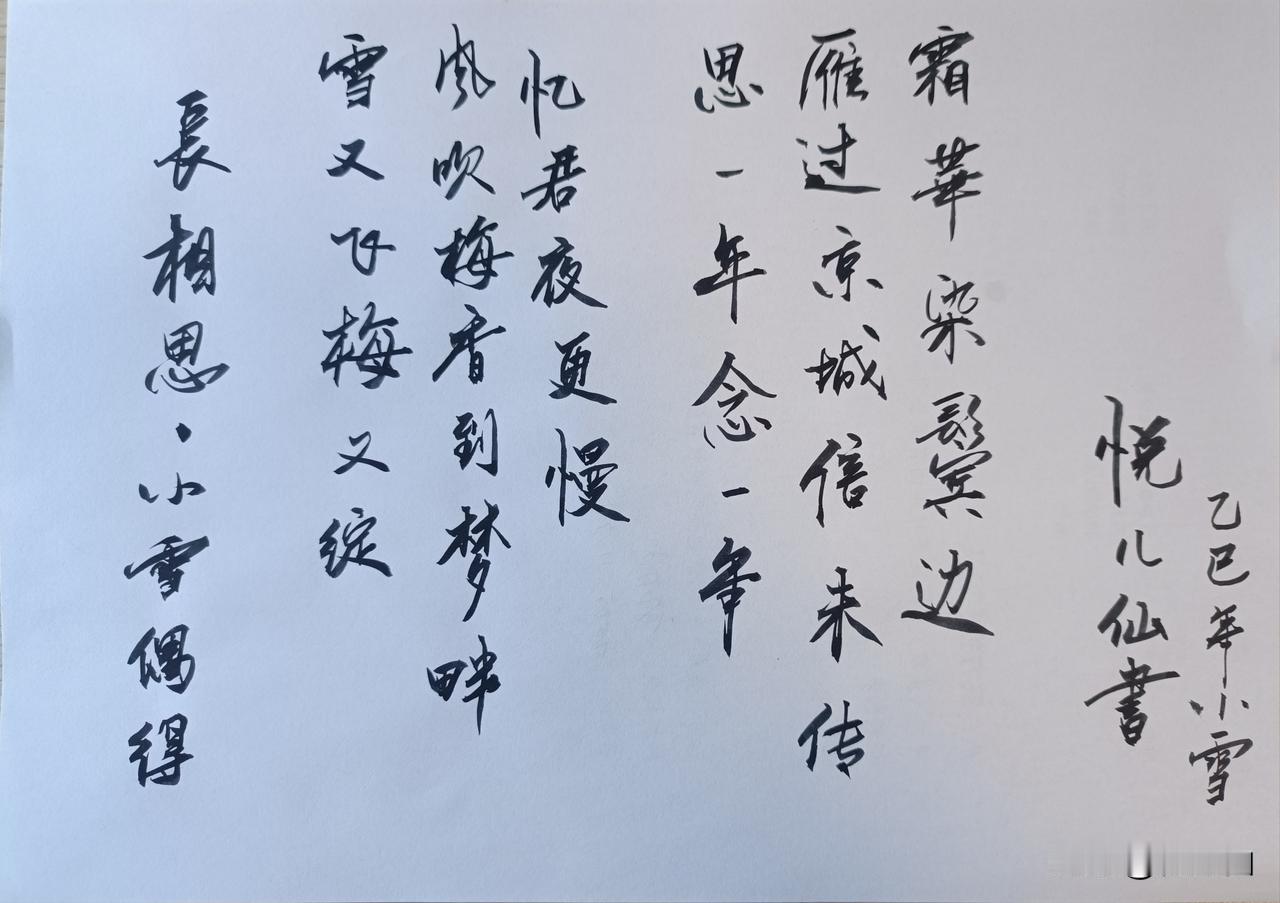 長相思·小雪偶得
雪又飞梅又绽
风吹梅香到梦畔
忆君夜更慢
思一年念一年
雁过京城信未传
霜華染鬢边
悦儿仙書
乙巳年小雪